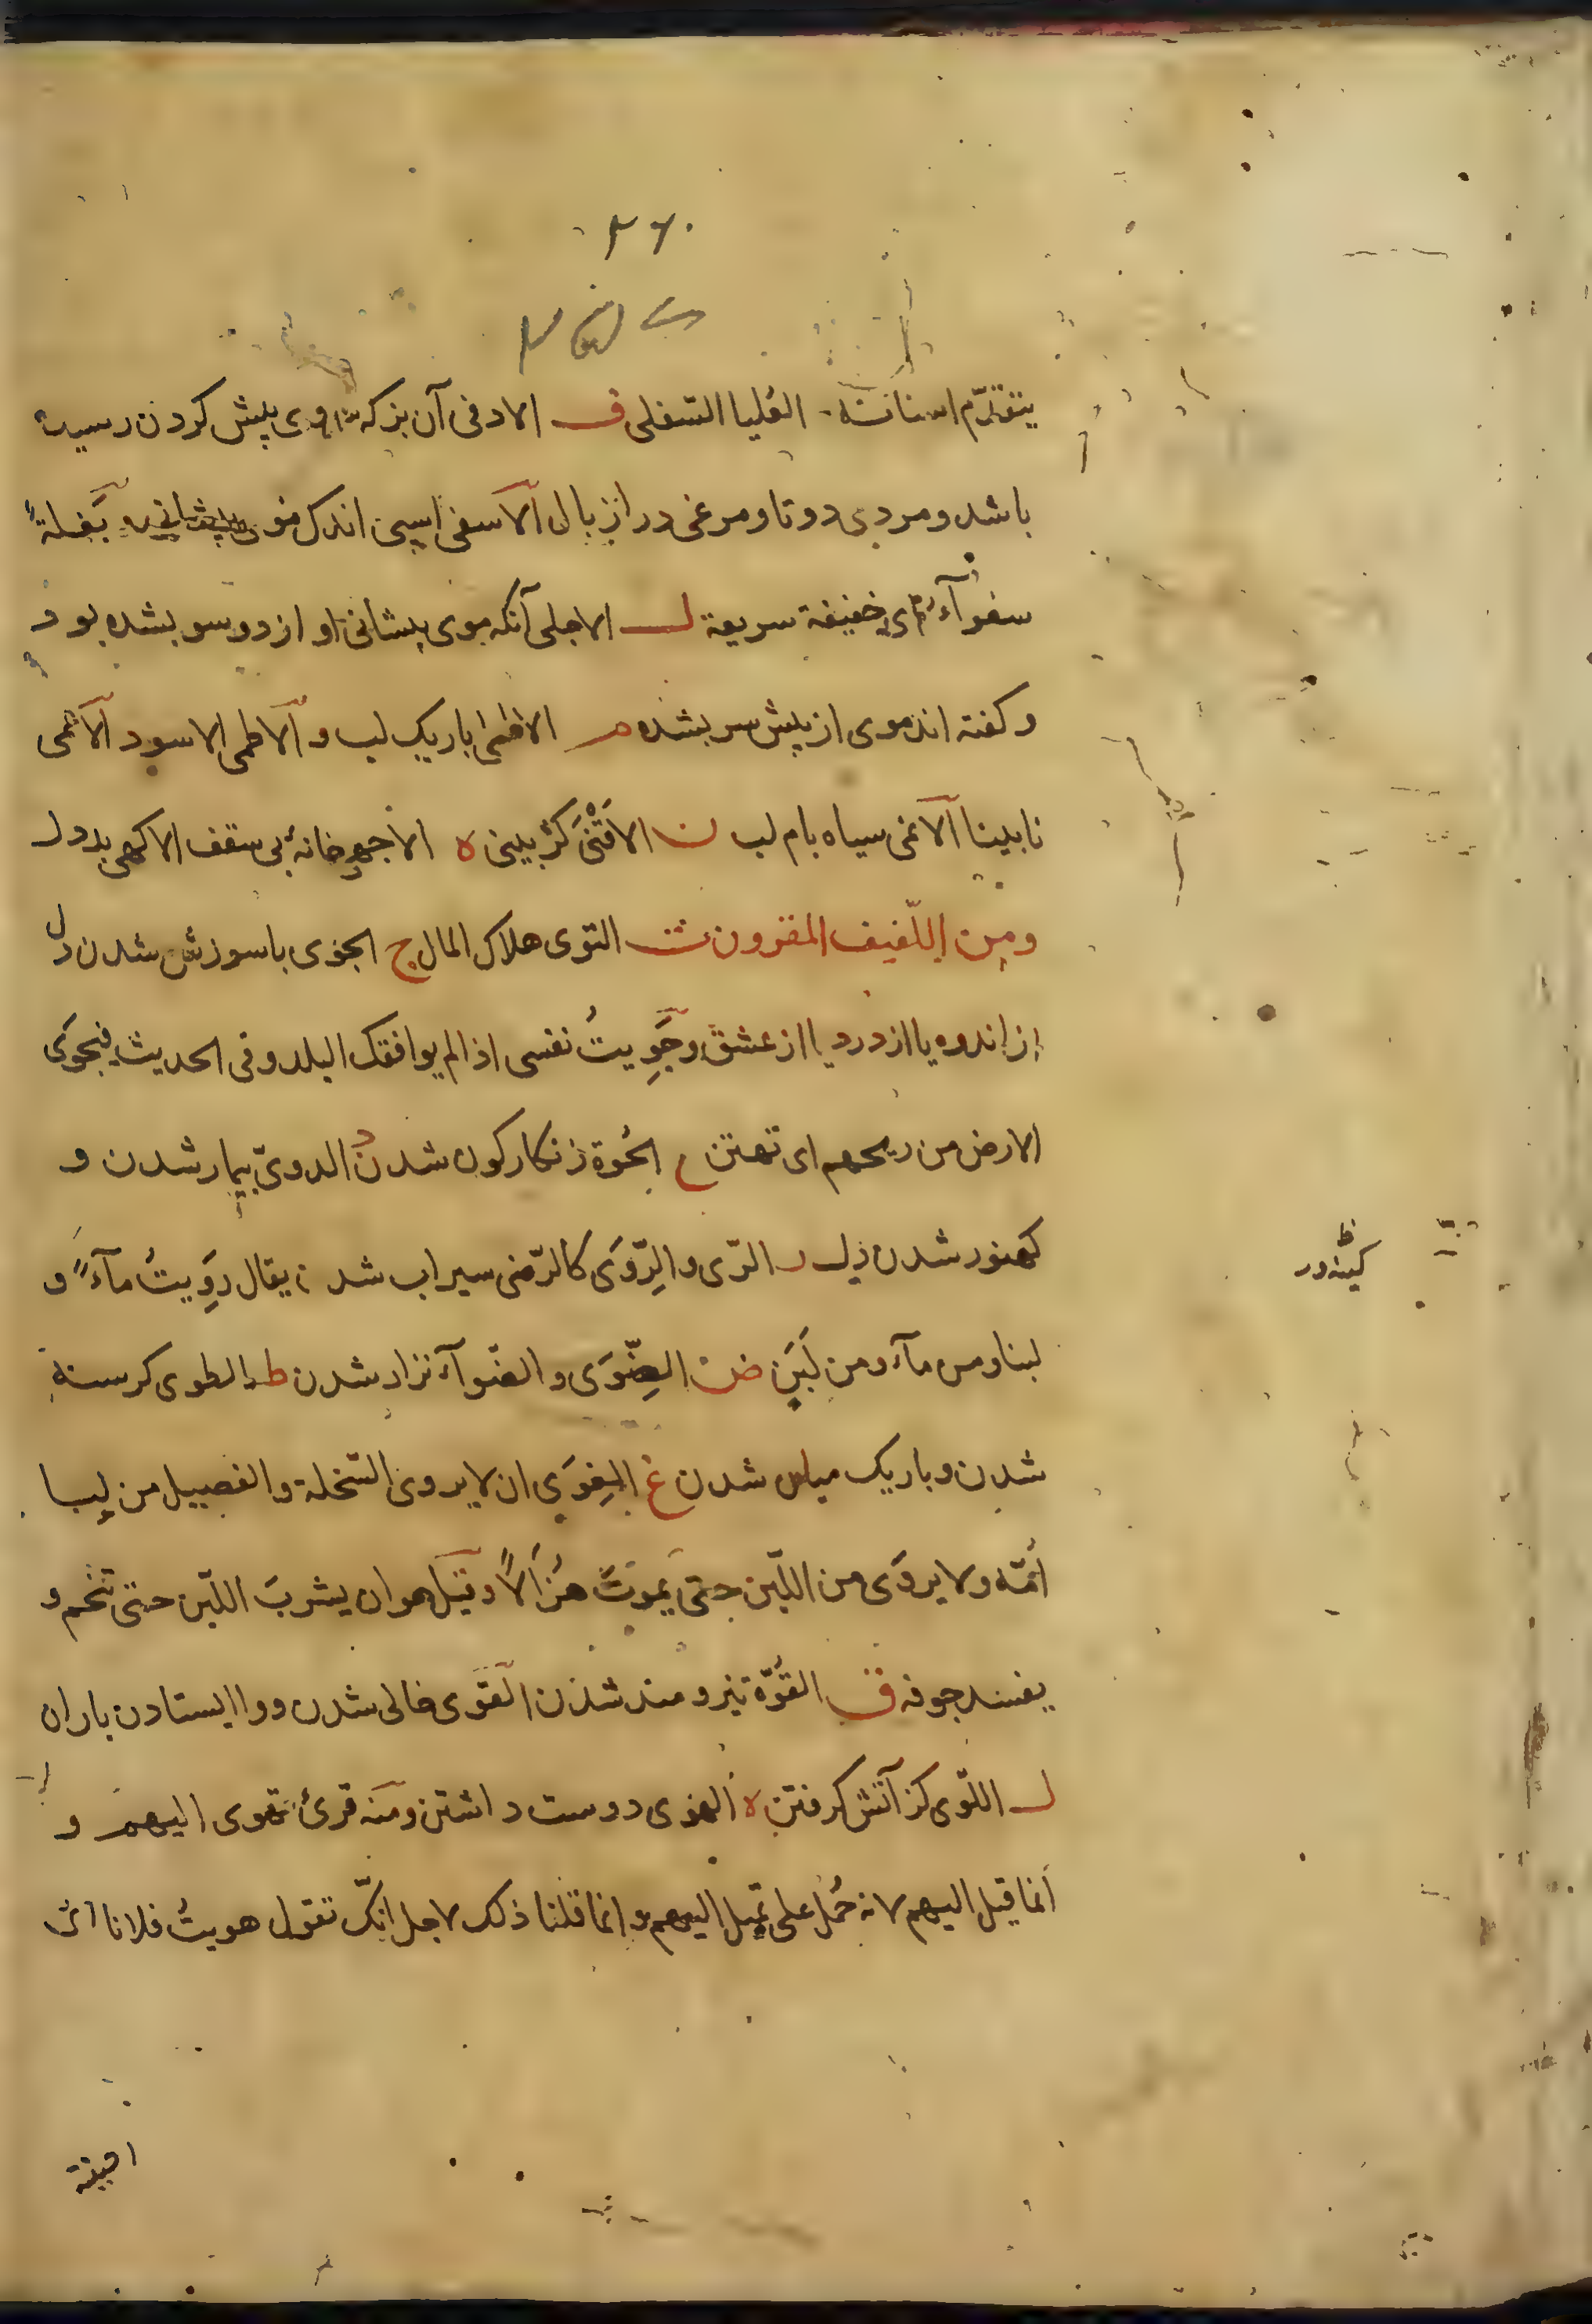 ۲۶۰
یتقدّم اسنانه العُلیا السّفلی ف الادفی آن بز که سروی پیش کردن رسیده
باشد و مردی دوتا و مرغی دراز بال الاسفی اسپی اندک موی پیشانی و بَغلةٌ
سفوآءُ ای خفیفة سریعة ل الاجلی آنکه موی پیشانی او از دو سو بشده بود
و کفته اند موی از پیش سر بشده م الاظمی باریک لب و الاظمی الاسود الاعمی
نابینا الاغمی سیاه بام لب ن الاقنی کژ بینی ه الاجهی خانهٔ بی سقف الاکهی بددل
ومن اللّفیف المقرون ث التوی هلاک المال ج الجوی باسوزش شدن دل
از اندوه یا از درد یا از عشق وجَوِیتُ نفسی اذا لم یوافقک البلد وفی الحدیث فیجوَی
الارض من ریحهم ای تهنتن ح الحُوة زنکارکون شدن د الدویّ بیمار شدن و
کهنور شدن دل ر الرّی والرِّوَی کالرّضی سیراب شدن یقال رَوِیتُ مآءً و
لبنا ومن مآء ومن لَبَنٍ ض الضِّوَی والضّوآء نزار شدن ط الطوی کرسنه
شدن وباریک میان شدن غ الغِوَی ان لا یروی السّخلة والفصیل من لِبا
اُمّه ولا یروَی من اللّبن حتی یموتَ هُزَالاً وقیل هو ان یشربَ اللّبن حتی تتخم و
یفسد جوفه ق القُوّة نیرومند شدن القَوی خالی شدن ووا ایستادن باران
ل اللّوی کژ آتش کرفتن ه الهوی دوست داشتن ومنه قرئ تهوی الیهم و
انما قیل الیهم لانه حُمل علی تمیل الیهم وانما قلنا ذلک لاجل انّک تقول هویتُ فلانا ای
کینه ور
احببته